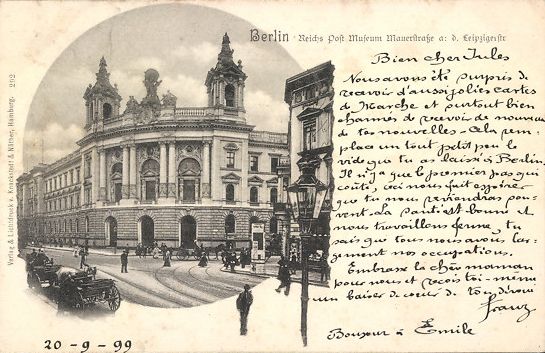 Berlin Reichs Post Museum Mauerstraße a: d. Leipzigerstr
Verlag & Lichtdruck v. Knackstedt & Näther, Hamburg. 292
Bien cher Jules
Nous avons été surpris de
recevoir d'aussi jolies cartes
de Marche et surtout bien
charmés de recevoir de nouveau
de tes nouvelles - Cela rem-
place un tout petit peu le
vide que tu as laissé à Berlin.
Il n'y a que le premier pas qui
coûte, ceci nous fait espérer
que tu nous reviendras
vent. La santé est bonne et
nous travaillons ferme, tu
sais que tous nous avons lar-
gement nos occupations.
Embrasse la chère maman
pour nous et reçois toi-même
un baiser de cœur de ton
Franz
Bonjour à Emile
20-9-99